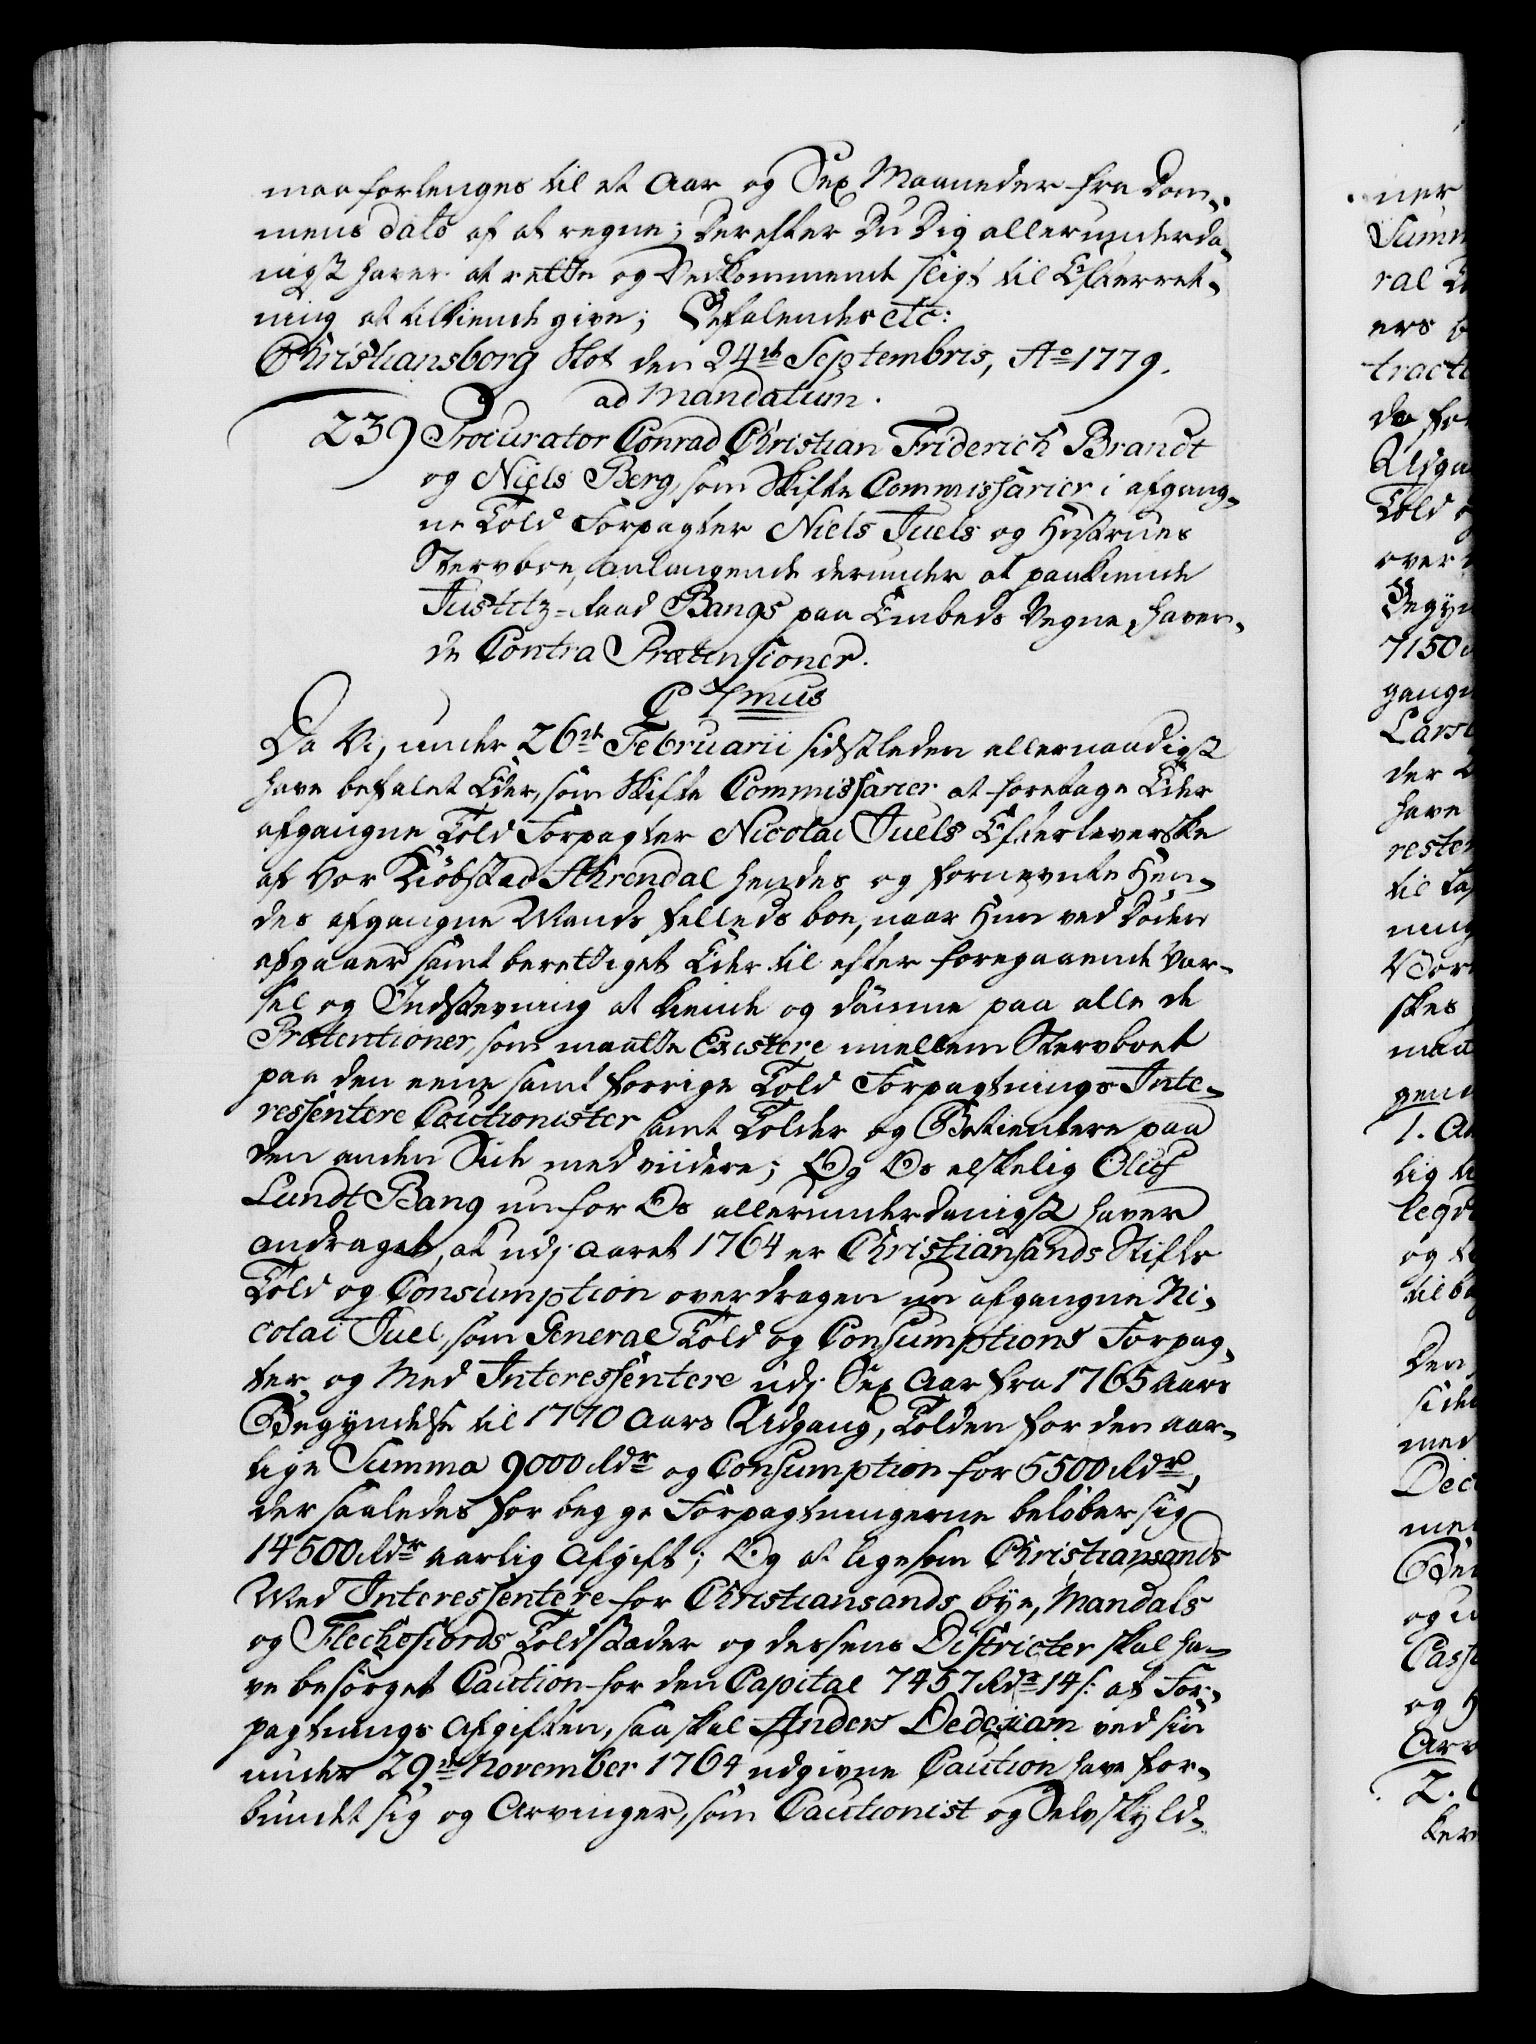 maa forlenges til et Aar og Sex Maaneder fra Dom-
mens dato af at regne; Derefter Du Dig allerunderda-
nigst haver at rette og Vedkommende sligt til Efterret-
ning at tilkiende give; Befalendes etc:
Christiansborg Slot den 24de Septembris, Ao 1779.
ad Mandatum.
239 Procurator Conrad Christian Friderich Brandt
og Niels Berg, som Skifte Commissarier i afgang-
ne Told Forpagter Niels Juels og Hustrues
Stervboe, anlangende derunder at paakiende
Justitz-Raad Bangs paa Embeds Vegne, haven-
de Contra Prætensioner.
C 7mus
Da Vi, under 26de Februarii sidstleden allernaadigst
have befalet Eder, som Skifte Commissarier at foretage Eder
afgangne Told Forpagter Nicolai Juels Efterleverske
af Vor Kiøbstad Ahrendal hendes og fornevnte Hen-
des afgangne Mands fælleds boe, naar Hun ved Døden
afgaaer samt berettiget Eder til efter foregaaende Var-
sel og Indstevning at kiende og dømme paa alle de
Prætentioner, som maatte Existere mellem Stervboet
paa den eene samt forrige Told Forpagtnings Inte-
ressentere Cautionister samt Tolder og Betientere paa
den anden Side med viidere; Og Os elskelig Oluf
Lundt Bang nu for Os allerunderdanigst haver
andraget, at udj Aaret 1764 er Christiansands Stifts
Told og Consumption overdragen nu afgangne Ni-
colai Juel, som General Told og Consumptions Forpag-
ter og Med Interessentere udj Sex Aar fra 1765 Aars
Begyndelse til 1770 Aars Udgang, Tolden for den aar-
lige Summa 9000 Rdr og Consumption for 5500 Rdr,
der saaledes for begge Forpagtningerne beløber sig
14500 Rdr aarlig Afgift; Og at ligesom Christiansands
Med Interessentere for Christiansands bye, Mandals
og Flechefiords Toldstæder og dessens Districter skal ha-
ve besørget Caution for den Capital 7457 Rdr 14 s: af For-
pagtnings Afgiften, saa skal Anders Dedekam ved sin
under 29de November 1764 udgivne Caution have for-
bundet sig og Arvinger, som Cautionist og Selvskyld-